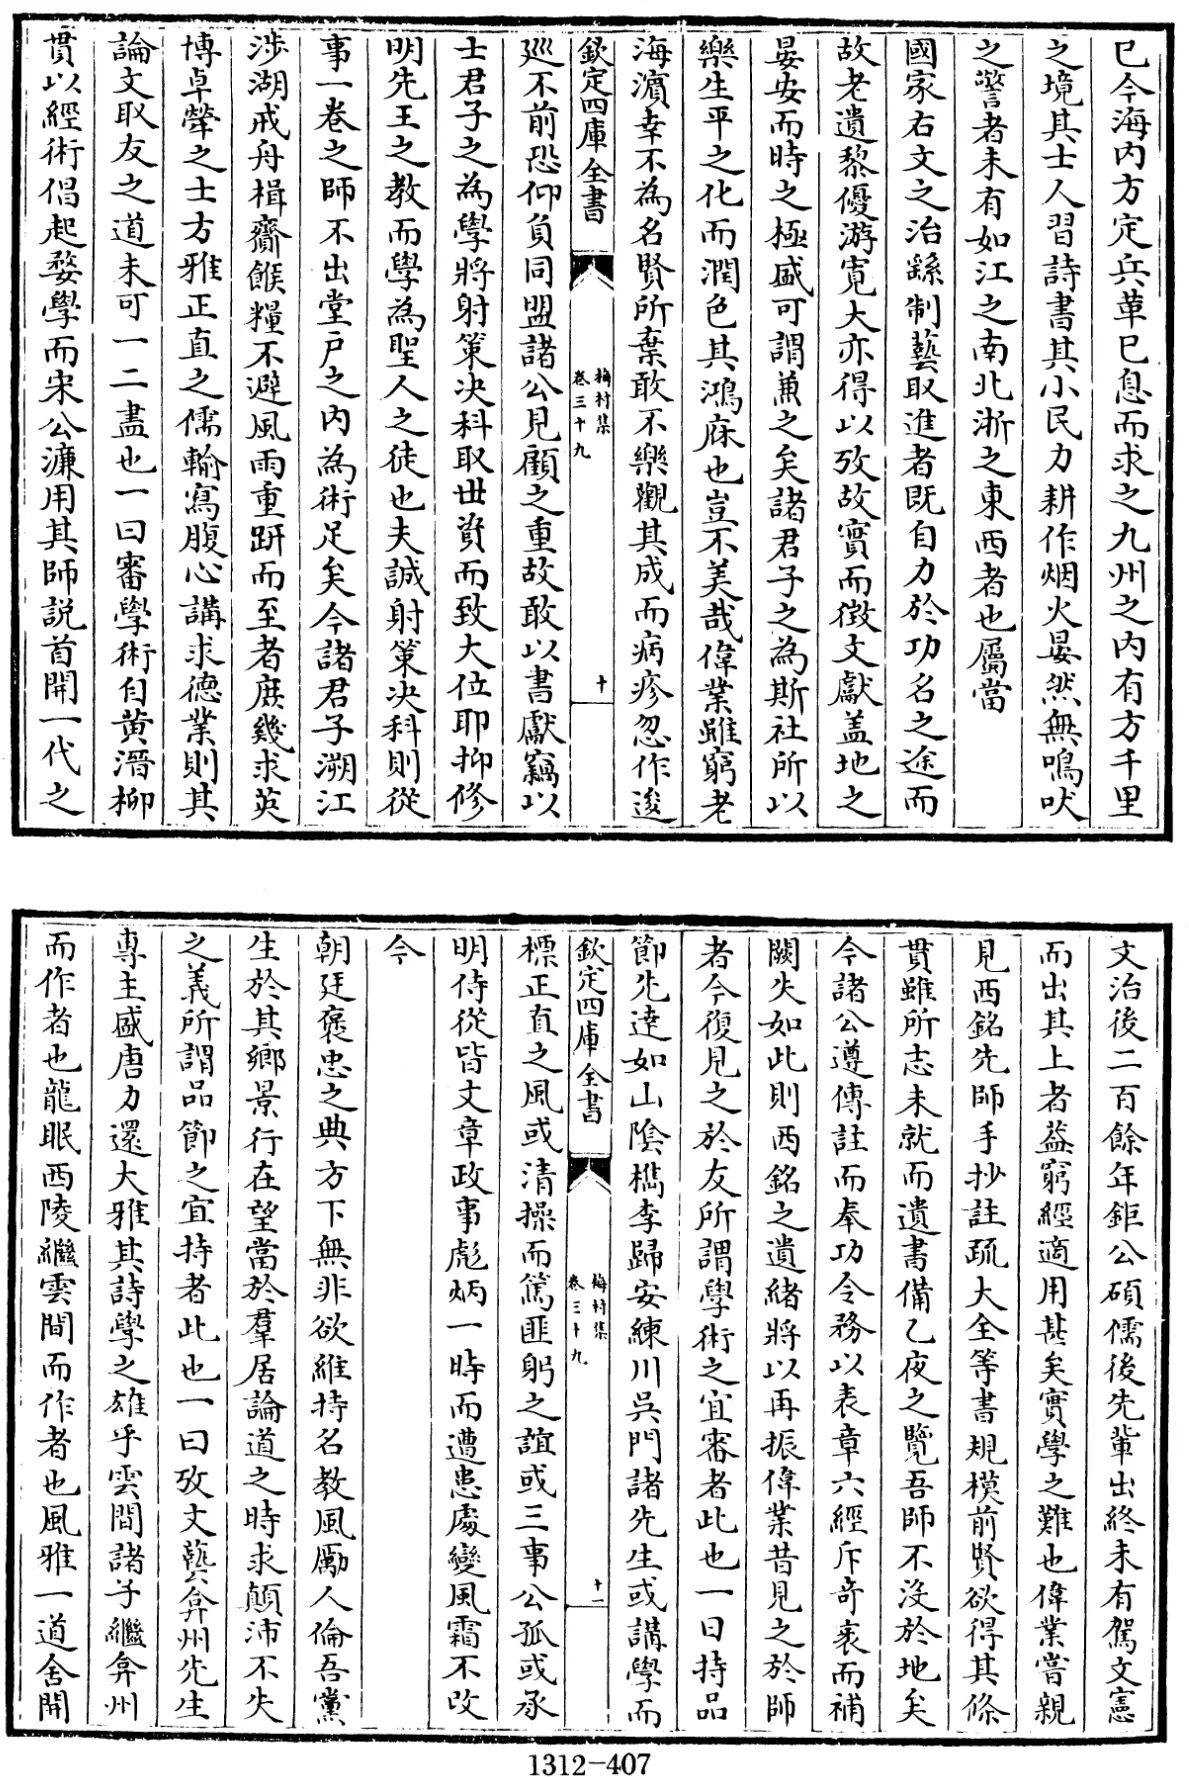 已今海内方定兵革已息而求之九州之内有方千里
之境其士人習詩書其小民力耕作烟火晏然無鳴吠
之警者未有如江之南北浙之東西者也屬當
國家右文之治繇制藝取進者既自力於功名之途而
故老遺黎優游寛大亦得以攷故實而徴文獻盖地之
晏安而時之極盛可謂兼之矣諸君子之為斯社所以
樂生平之化而潤色其鴻庥也豈不美哉偉業雖窮老
海濵幸不為名賢所棄敢不樂觀其成而病疹忽作逡
欽定四庫全書
梅村集
卷三十九
十
巡不前恐仰負同盟諸公見顧之重故敢以書獻竊以
士君子之為學將射策决科取世資而致大位耶抑修
明先王之教而學為聖人之徒也夫誠射策决科則從
事一卷之師不出堂戸之内為術足矣今諸君子溯江
涉湖戒舟楫齎餱糧不避風雨重趼而至者庶幾求英
博卓犖之士方雅正直之儒輸寫腹心講求德業則其
論文取友之道未可一二盡也一曰審學術自黄溍柳
貫以經術倡起婺學而宋公濂用其師説首開一代之
文治後二百餘年鉅公碩儒後先軰出終未有駕文憲
而出其上者葢窮經適用甚矣實學之難也偉業嘗親
見西銘先師手抄註疏大全等書規模前賢欲得其條
貫雖所志未就而遺書備乙夜之覽吾師不没於地矣
今諸公遵傳註而奉功令務以表章六經斥竒衺而補
闕失如此則西銘之遺緒將以再振偉業昔見之於師
者今復見之於友所謂學術之宜審者此也一曰持品
節先達如山隂檇李歸安練川吳門諸先生或講學而
欽定四庫全書
梅村集
卷三十九
十一
標正直之風或清操而篤匪躬之誼或三事公孤或承
明侍從皆文章政事彪炳一時而遭患處變風霜不改
今
朝廷褒忠之典方下無非欲維持名教風勵人倫吾黨
生於其鄉景行在望當於羣居論道之時求顛沛不失
之義所謂品節之宜持者此也一曰攷文藝弇州先生
專主盛唐力還大雅其詩學之雄乎雲間諸子繼弇州
而作者也龍眠西陵繼雲間而作者也風雅一道舍開
1312-407